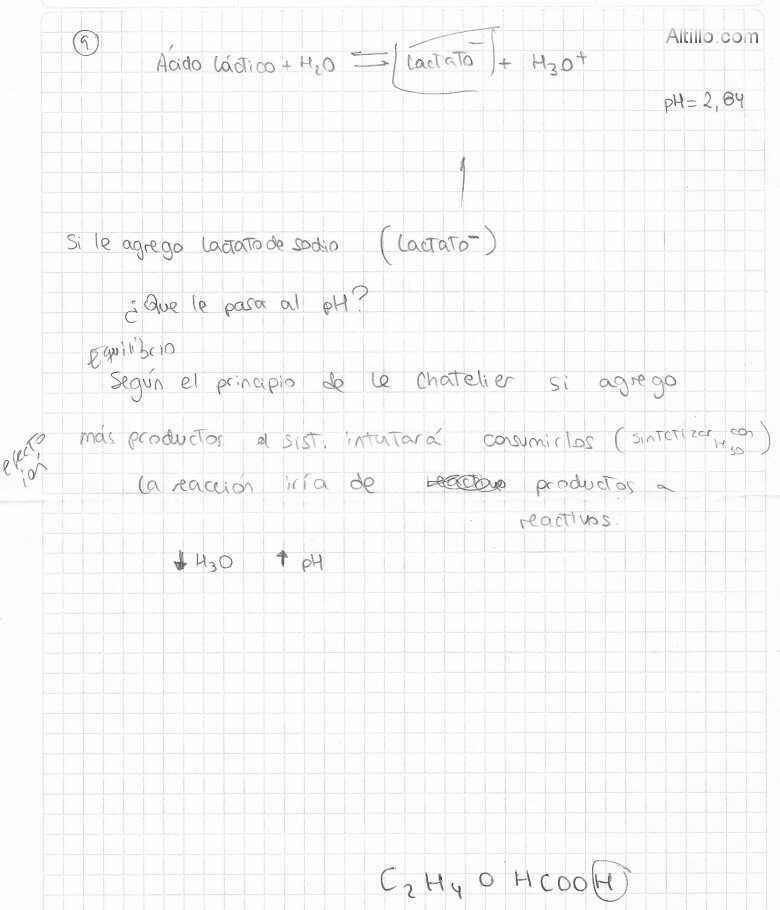 9
Altillo.com
Ácido láctico + H₂O ⇌ [Lactato⁻] + H₃O⁺
pH = 2,64
↑
Si le agrego Lactato de sodio (Lactato⁻)
¿Que le pasa al pH?
Equilibrio
Según el principio de Le Chatelier si agrego
más productos el sist. intutará consumirlos (sintetizar con
efecto ión
La reacción iría de productos a
reactivos.
↓ H₃O ↑ pH
C₂H₄OHCOOH